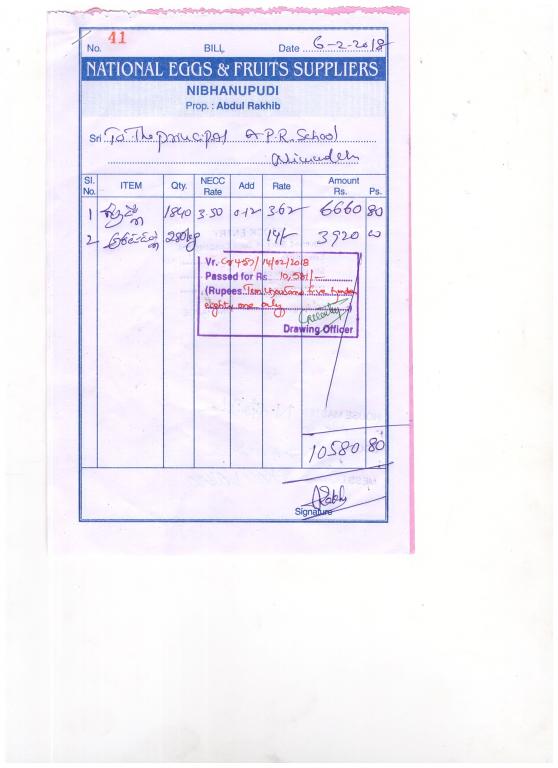 No. 41 BILL Date 6-2-2018
NATIONAL EGGS & FRUITS SUPPLIERS
NIBHANUPUDI
Prop. : Abdul Rakhib
Sri To The principal A.P.R. School
Sl. No. ITEM Qty. NECC Rate Add Rate Amount Rs. Ps.
1 1840 3.50 0.12 3.62 6660 80
2 280kg 14/- 3920 00
Vr. 457/14/02/2018
Passed for Rs. 10,581/-
(Rupees Ten thousand five hundred
eighty one only )
Drawing Officer
10580 80
Signature